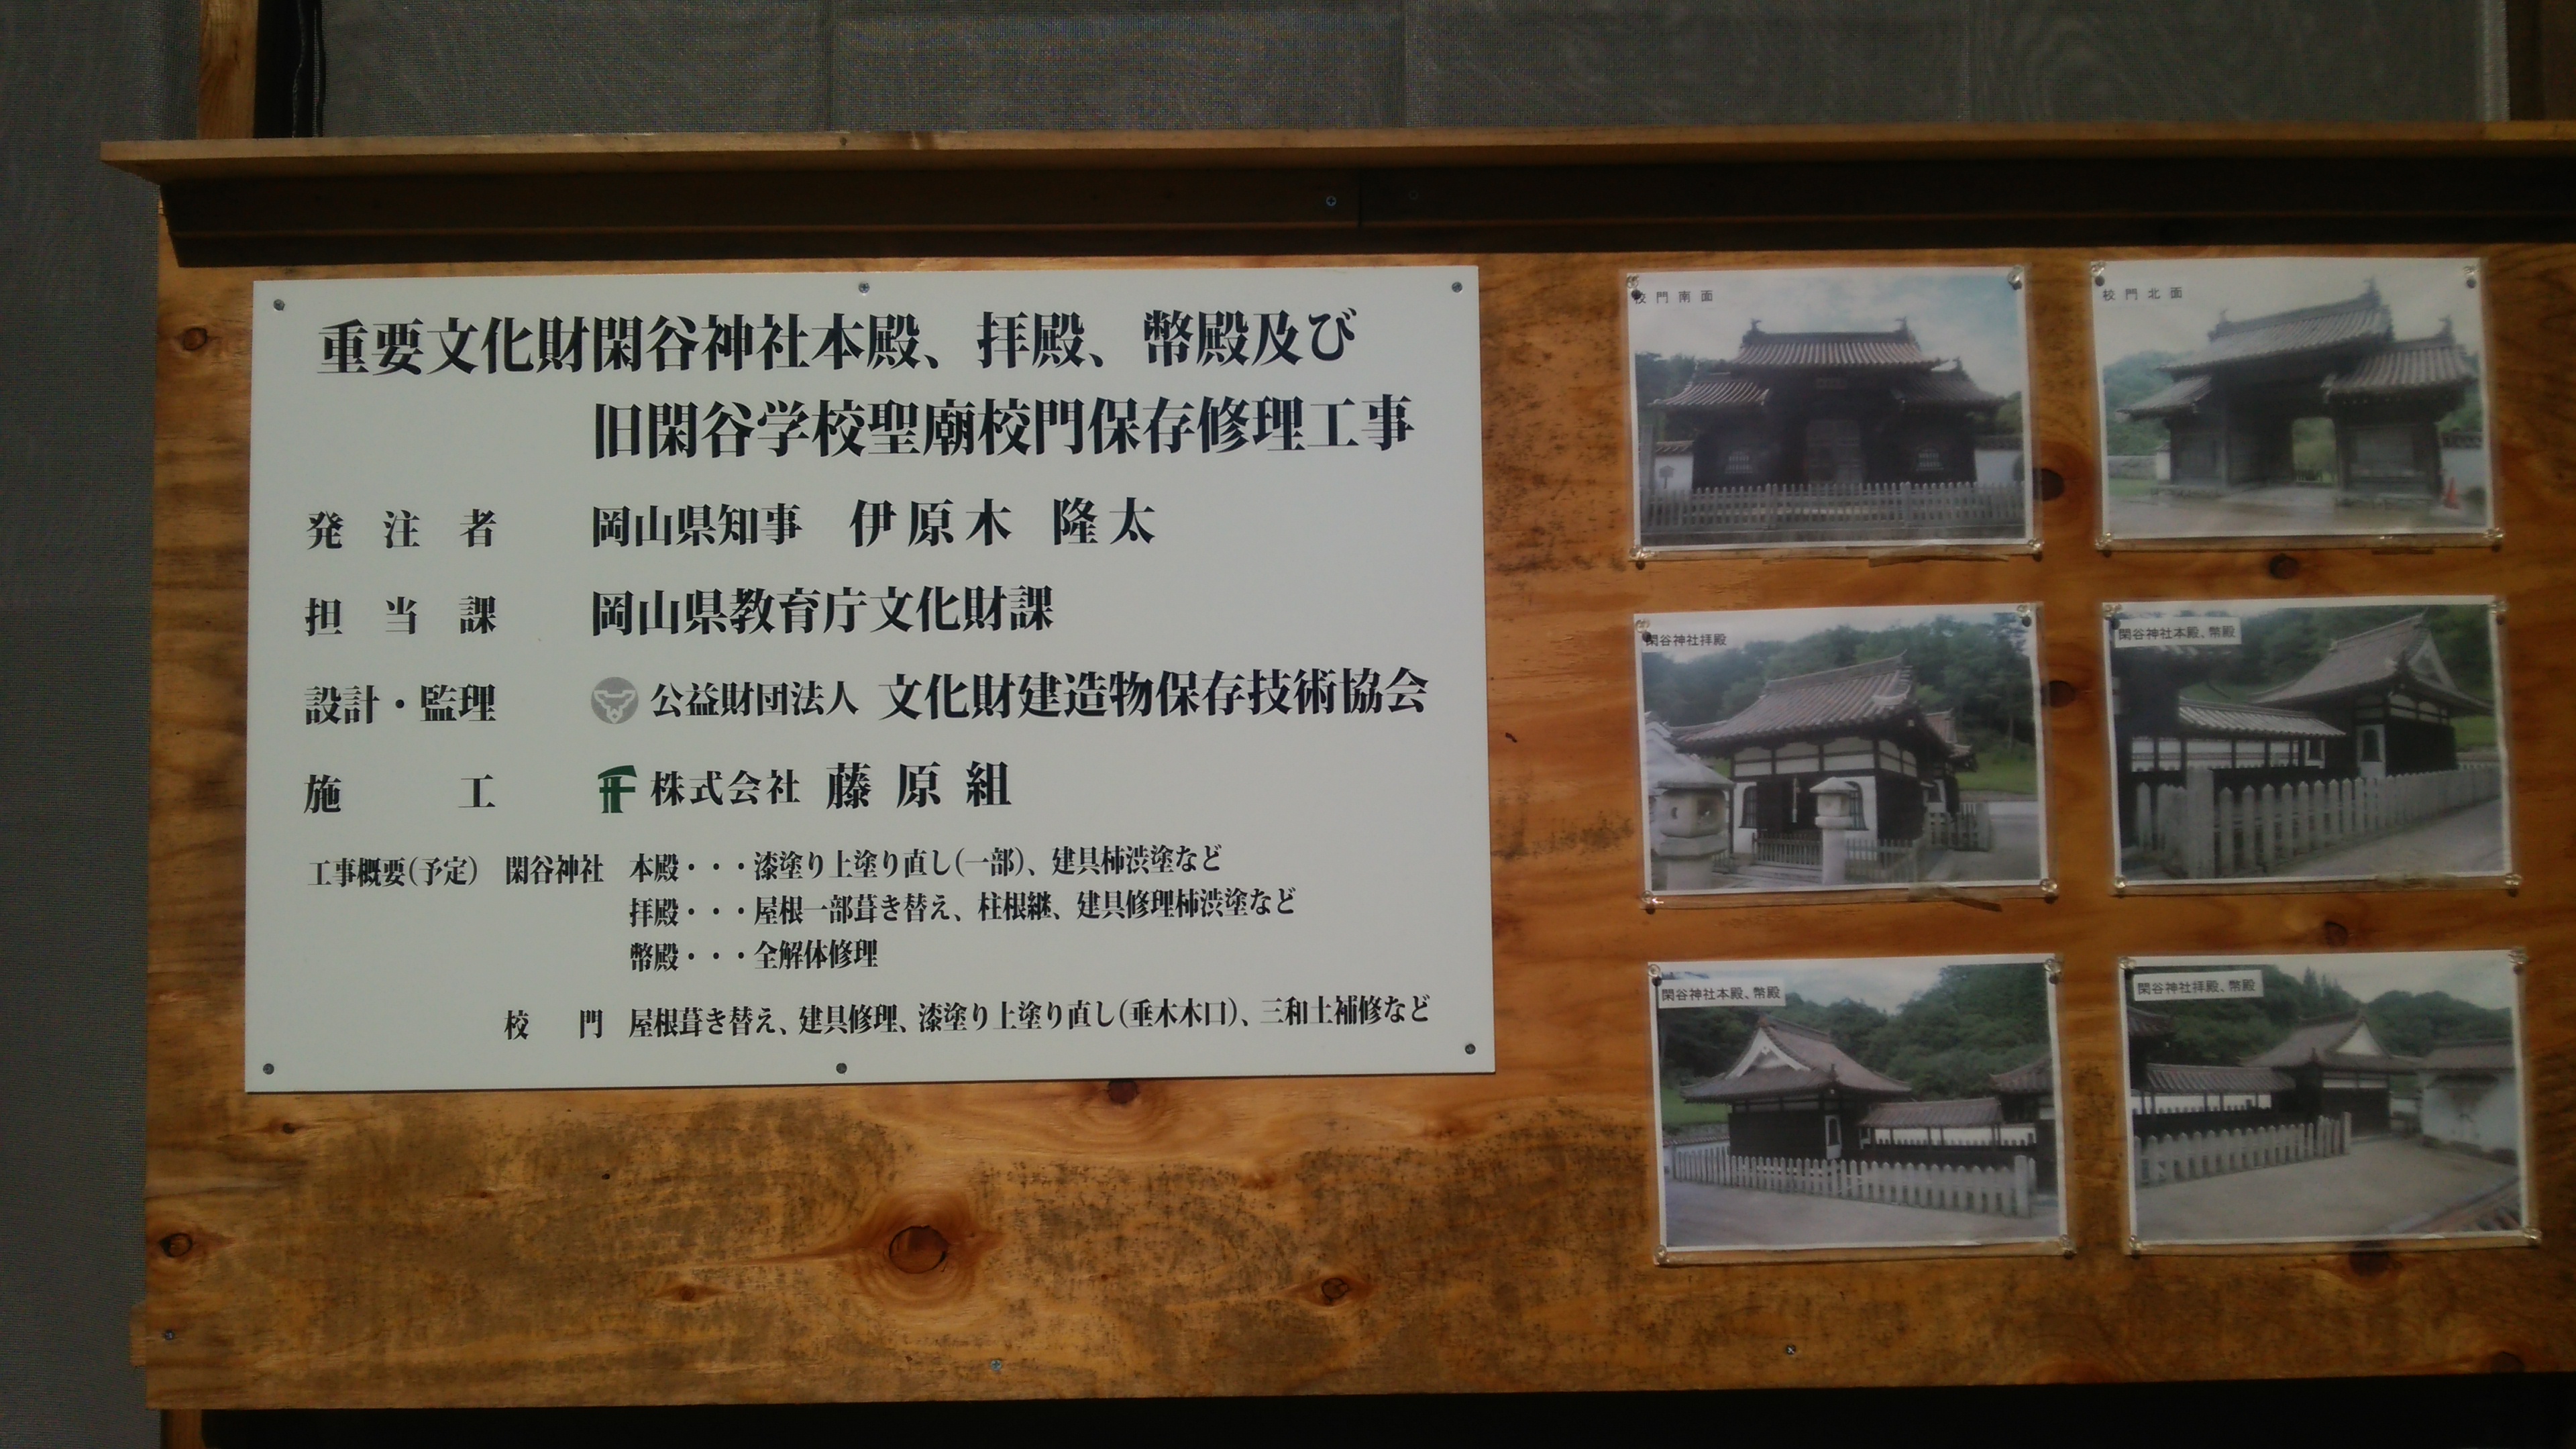 重要文化財閑谷神社本殿、拝殿、幣殿及び
旧閑谷学校聖廟校門保存修理工事
発注者 岡山県知事 伊原木 隆太
担当課 岡山県教育庁文化財課
設計・監理 公益財団法人 文化財建造物保存技術協会
施工 株式会社 藤原組
工事概要(予定) 閑谷神社 本殿・・・漆塗り上塗り直し(一部)、建具柿渋塗など
拝殿・・・屋根一部葺き替え、柱根継、建具修理柿渋塗など
幣殿・・・全解体修理
校門 屋根葺き替え、建具修理、漆塗り上塗り直し(垂木木口)、三和土補修など
校門南面
校門北面
閑谷神社拝殿
閑谷神社本殿、幣殿
閑谷神社本殿、幣殿
閑谷神社拝殿、幣殿